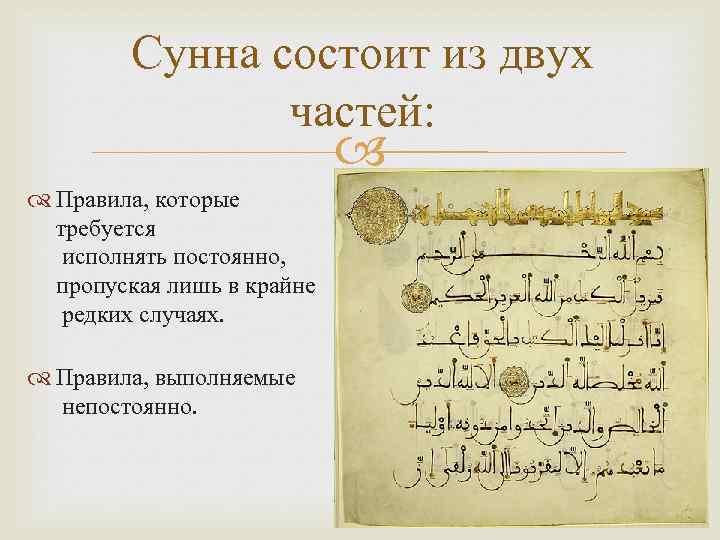 Сунна состоит из двух
частей:
Правила, которые
требуется
исполнять постоянно,
пропуская лишь в крайне
редких случаях.
Правила, выполняемые
непостоянно.
بسم الله الرحمن الرحيم
تنزيل الكتب من الله العزيز الحكيم
انا انزلنا اليك الكتب بالحق فاعبد
الله مخلصا له الدين الا لله
الدين الخالص والذين اتخذوا من دونه اوليا
ما نعبدهم الا ليقربونا الى الله زلفى ان